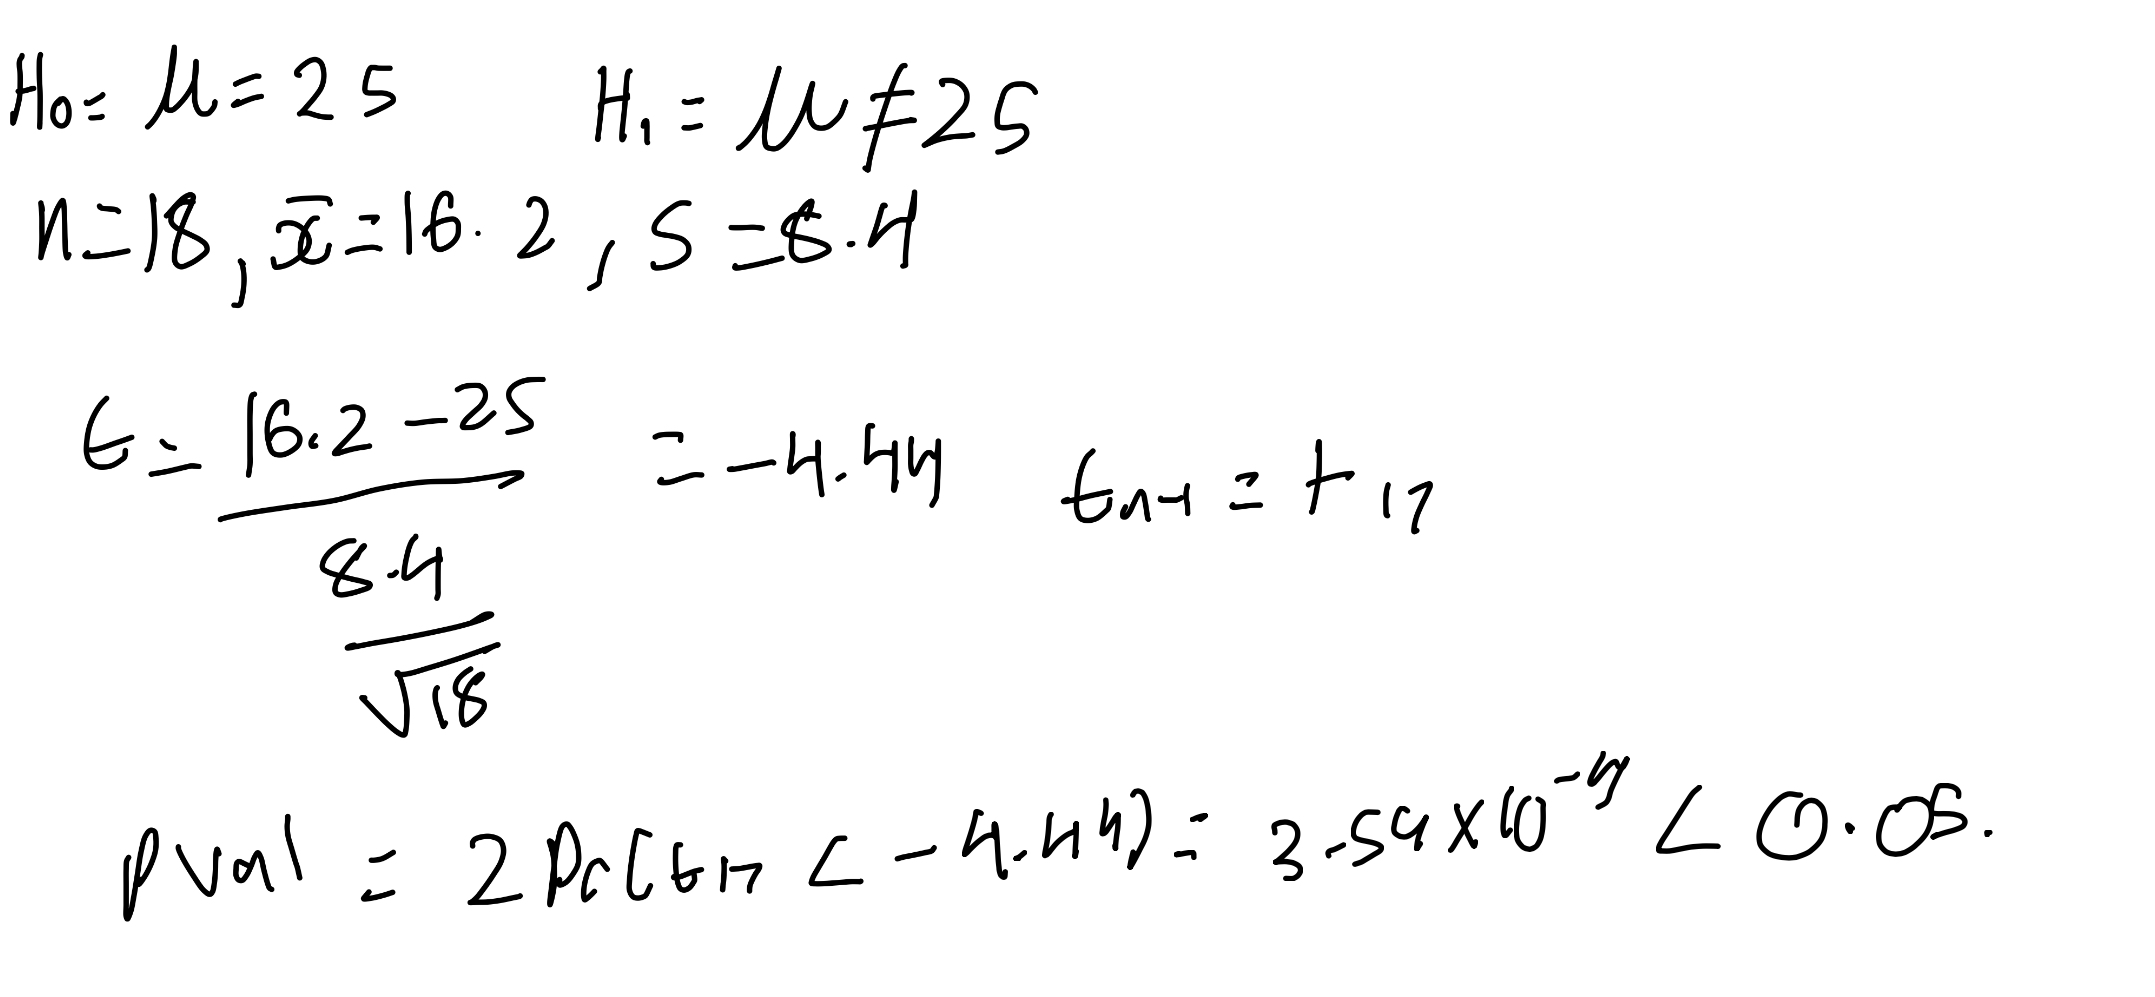 H₀: μ = 25   H₁: μ ≠ 25
n = 18, x̄ = 16.2, s = 8.4
t = (16.2 - 25) / (8.4 / √18) = -4.44   tₙ₋₁ = t₁₇
pval = 2Pr(t₁₇ < -4.44) = 3.54 × 10⁻⁴ < 0.05.